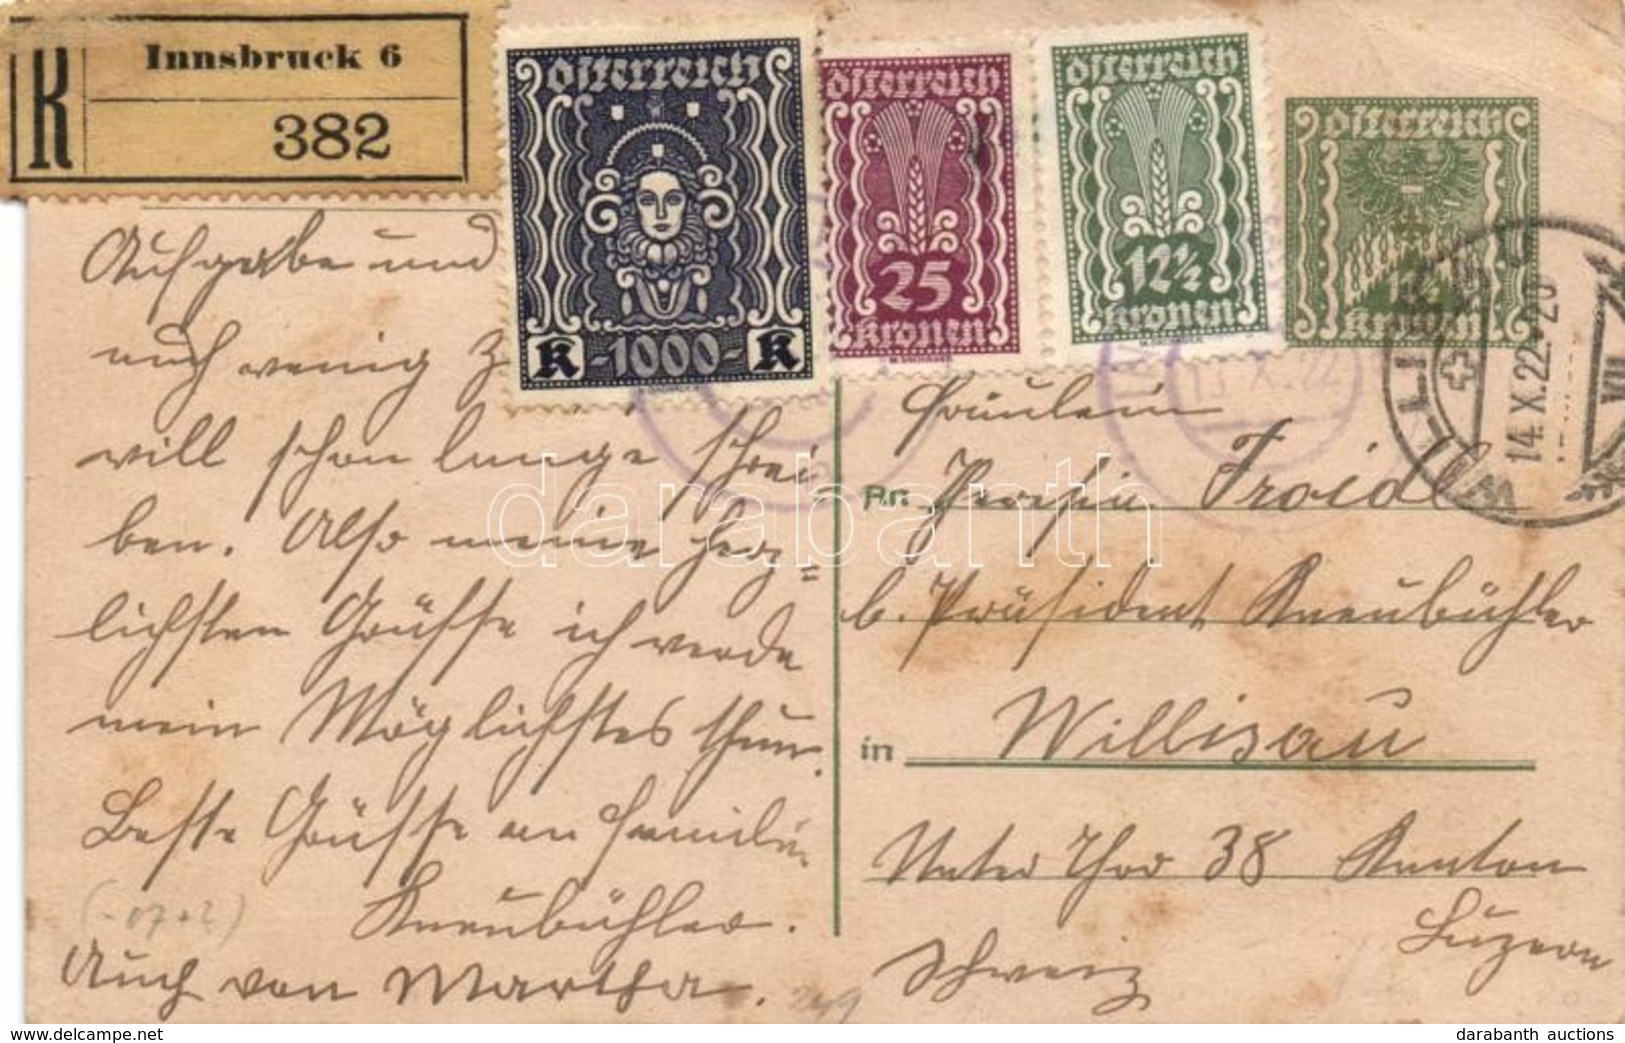 R
Innsbruck 6
382
Österreich
K -1000- K
Österreich
25
Kronen
Österreich
12½
Kronen
Österreich
Kronen
WILLISAU
14.X.22.-20
VII
13.X.22
Aufgabe und
auch wenig
will schon lange schrei-
ben. Also meine herz=
lichsten Grüsse ich werde
mein Möglichstes thun.
Beste Grüsse an Familie
Kneubühler.
Auch von Martha.
Fräulein
An Theresia Froidl
b. Präsident Kneubühler
in Willisau
Unter Thor 38 Kanton
Luzern
Schweiz
darabanth
darabanth auctions